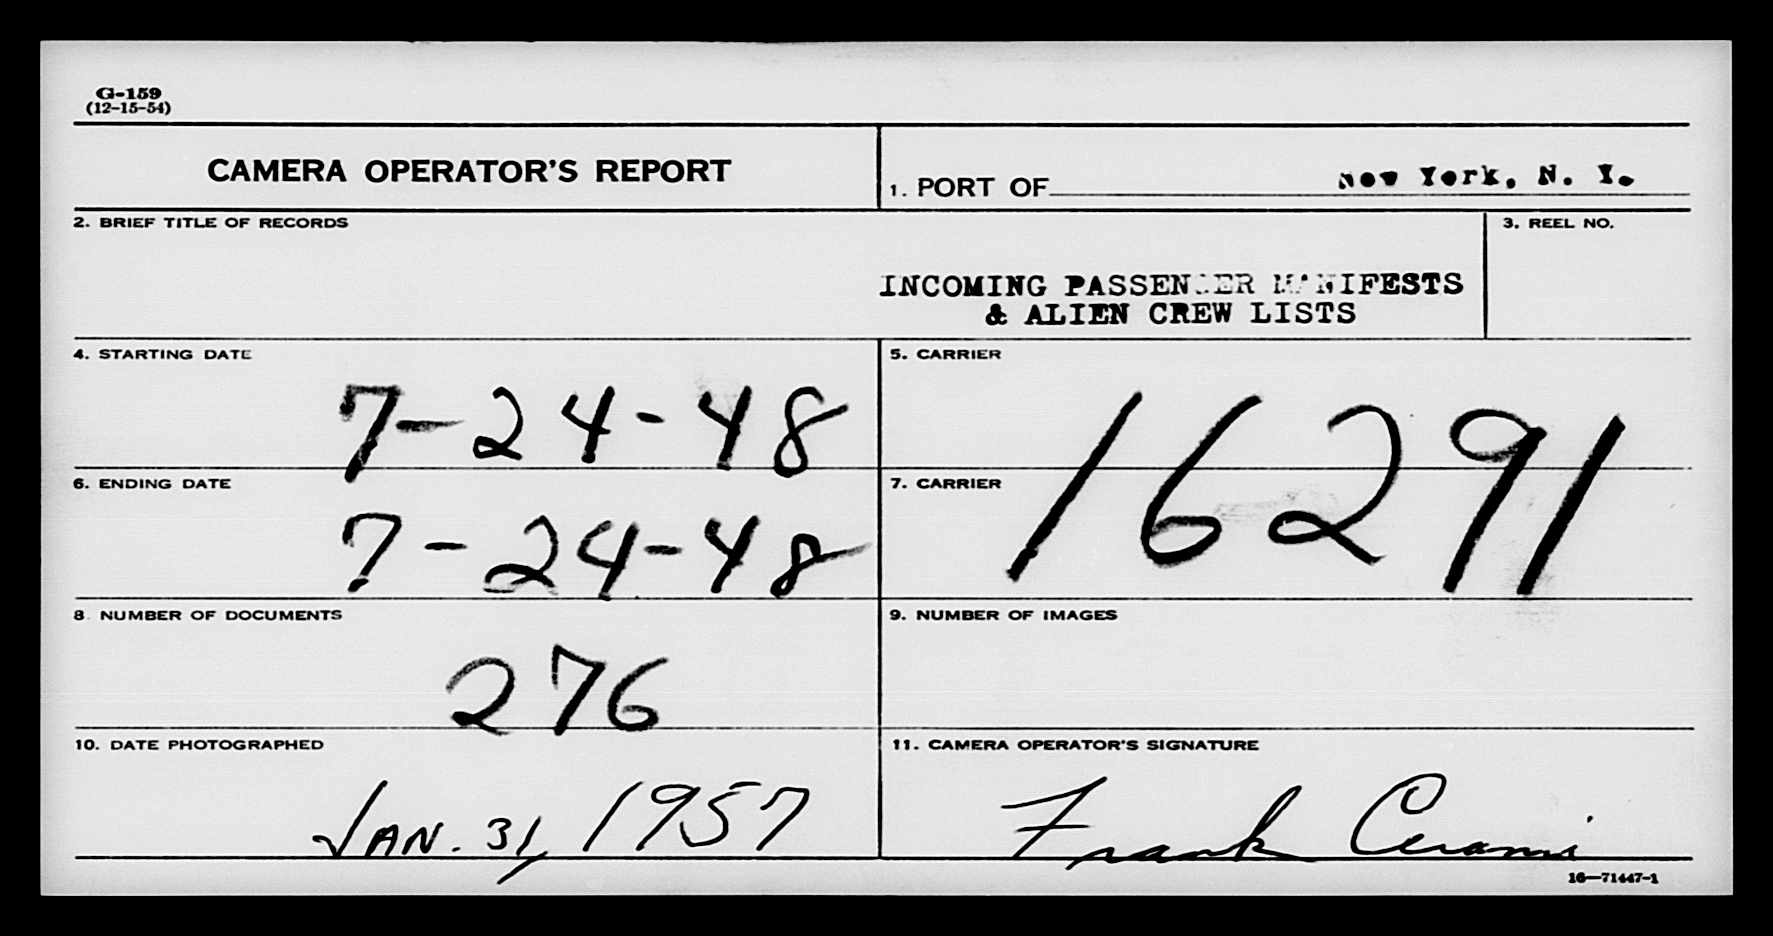 G-159
(12-15-54)
CAMERA OPERATOR'S REPORT
1. PORT OF New York, N. Y.
2. BRIEF TITLE OF RECORDS
INCOMING PASSENGER MANIFESTS
& ALIEN CREW LISTS
3. REEL NO.
4. STARTING DATE
7-24-48
5. CARRIER
16291
6. ENDING DATE
7-24-48
7. CARRIER
8. NUMBER OF DOCUMENTS
276
9. NUMBER OF IMAGES
10. DATE PHOTOGRAPHED
JAN. 31, 1957
11. CAMERA OPERATOR'S SIGNATURE
Frank Cerami
16—71447-1